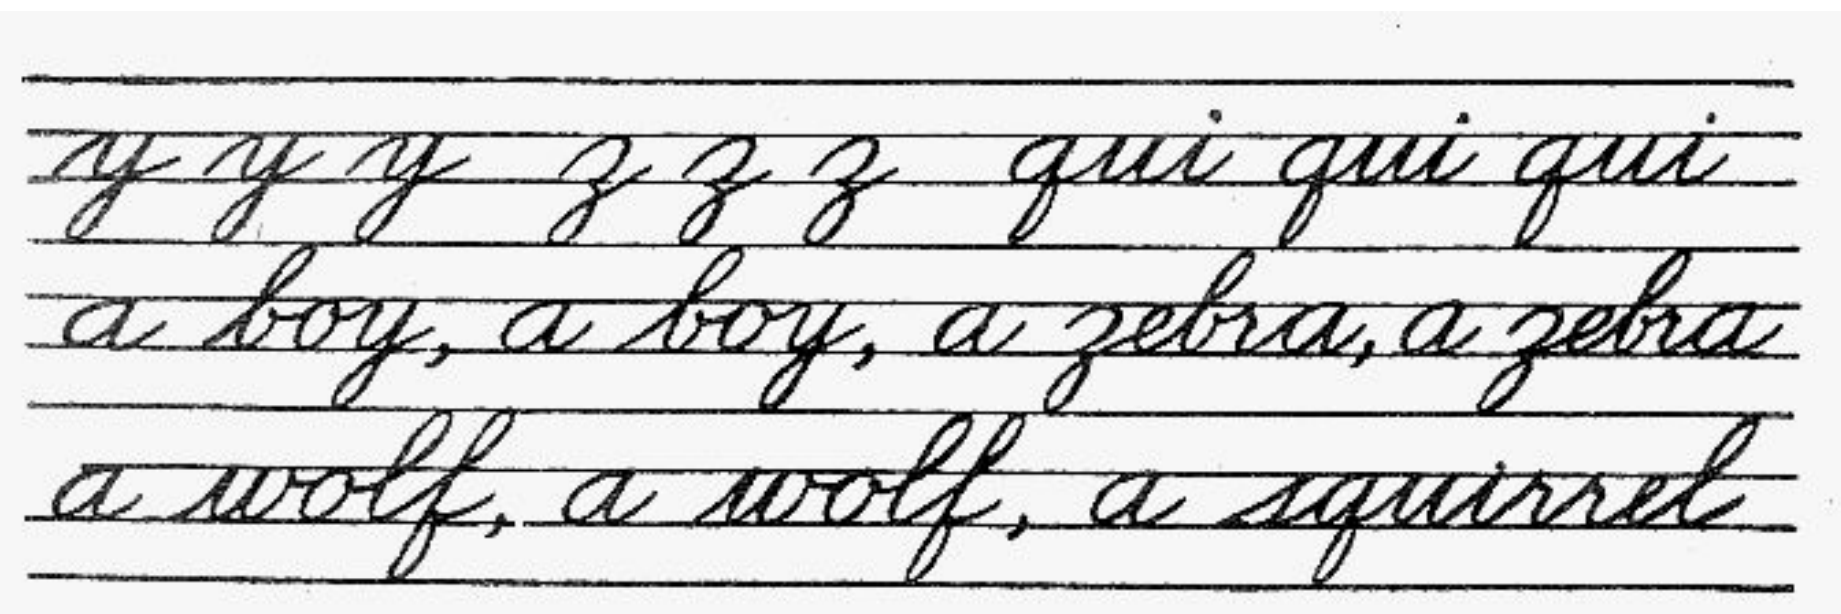 y y y z z z qui qui qui
a boy, a boy, a zebra, a zebra
a wolf, a wolf, a squirrel